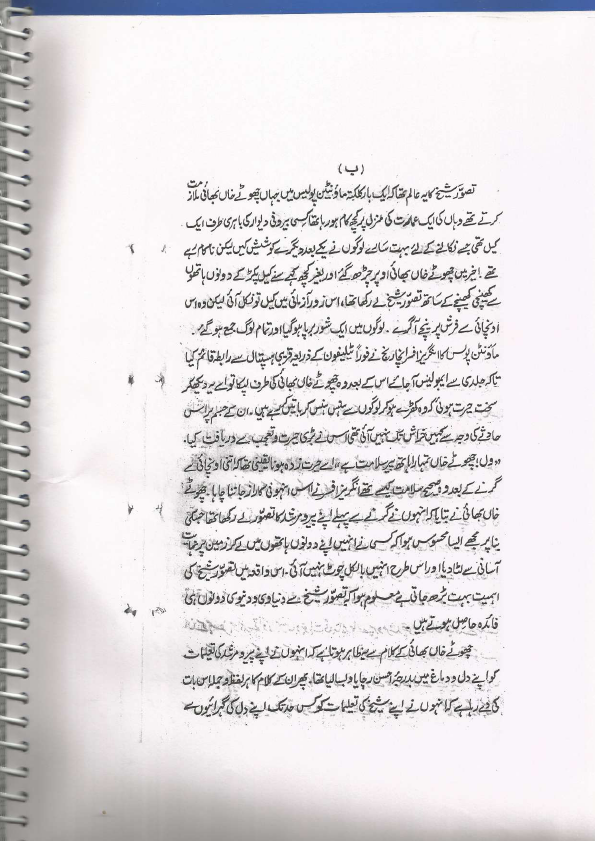 (ب)
تصوّر شیخ کا یہ عالم تھا کہ ایک بار کلکتہ ماؤنٹین پولیس میں یہاں چھوٹے خاں بھائی ملازمت
کرتے تھے وہاں کی ایک عمارت کی منزل پر کچھ کام ہو رہا تھا کسی بیرونی دیوار کی باہری طرف ایک
کیل تھی جسے نکالنے کے لئے بہت سارے لوگوں نے یکے بعد دیگرے کوشش کیں لیکن ناکام رہے
تھے۔ اخیر میں چھوٹے خاں بھائی اوپر چڑھ گئے اور بغیر کچھ کہے سنے کیل پکڑ کے دونوں ہاتھوں
سے کھینچی کھینچنے کے ساتھ تصوّر شیخ لے رکھا تھا، اس زور آزمائی میں کیل تو نکل آئی لیکن وہ اس
اونچائی سے فرش پر نیچے آ گرے۔ لوگوں میں ایک شور برپا ہو گیا اور تمام لوگ جمع ہو گئے۔
ماؤنٹن پولس کا انگریز افسر انچارج نے فوراً ٹیلیفون کے ذریعہ قریبی ہسپتال سے رابطہ قائم کیا
تاکہ جلدی سے ایمبولینس آجائے اس کے بعد وہ چھوٹے خاں بھائی کی طرف لپکا تو اسے یہ دیکھ کر
سخت حیرت ہوئی کہ وہ کھڑے ہو کر لوگوں سے ہنس ہنس کر باتیں کر رہے ہیں۔ ان کے جسم پر اس
حادثے کی وجہ سے کہیں خراش تک نہیں آئی تھی اس نے بڑی حیرت و تعجب سے دریافت کیا۔
"ول؛ چھوٹے خاں تمہارا ہاتھ پیر سلامت ہے" اسے حیرت زدہ ہونا یقینی تھا کہ اتنی اونچائی سے
گرنے کے بعد وہ صحیح و سلامت کیسے تھے انگریز افسر نے اس انہونی کا راز جاننا چاہا۔ چھوٹے
خاں بھائی نے بتایا کہ انہوں نے گرنے سے پہلے اپنے پیر و مرشد کا تصوّر لے رکھا تھا جس کی
بنا پر مجھے ایسا محسوس ہوا کہ کسی نے انہیں اپنے دونوں ہاتھوں میں لے کر زمین پر نہایت
آسانی سے لٹا دیا اور اس طرح انہیں بالکل چوٹ نہیں آئی۔ اس واقعہ میں تصوّر شیخ کی
اہمیت بہت بڑھ جاتی ہے معلوم ہوا کہ تصوّر شیخ سے دنیاوی و دنیوی دونوں ہی
فائدہ حاصل ہوتے ہیں۔
چھوٹے خاں بھائی کے کلام سے یہ ظاہر ہوتا ہے کہ انہوں نے اپنے پیر و مرشد کی تعلیمات
کو اپنے دل و دماغ میں بدرجہ احسن رچا یا و بسا لیا تھا۔ پھر ان کے کلام کا ہر لفظ و جملہ اس بات
کی دے رہا ہے کہ انہوں نے اپنے شیخ کی تعلیمات کو کس حد تک اپنے دل کی گہرائیوں سے